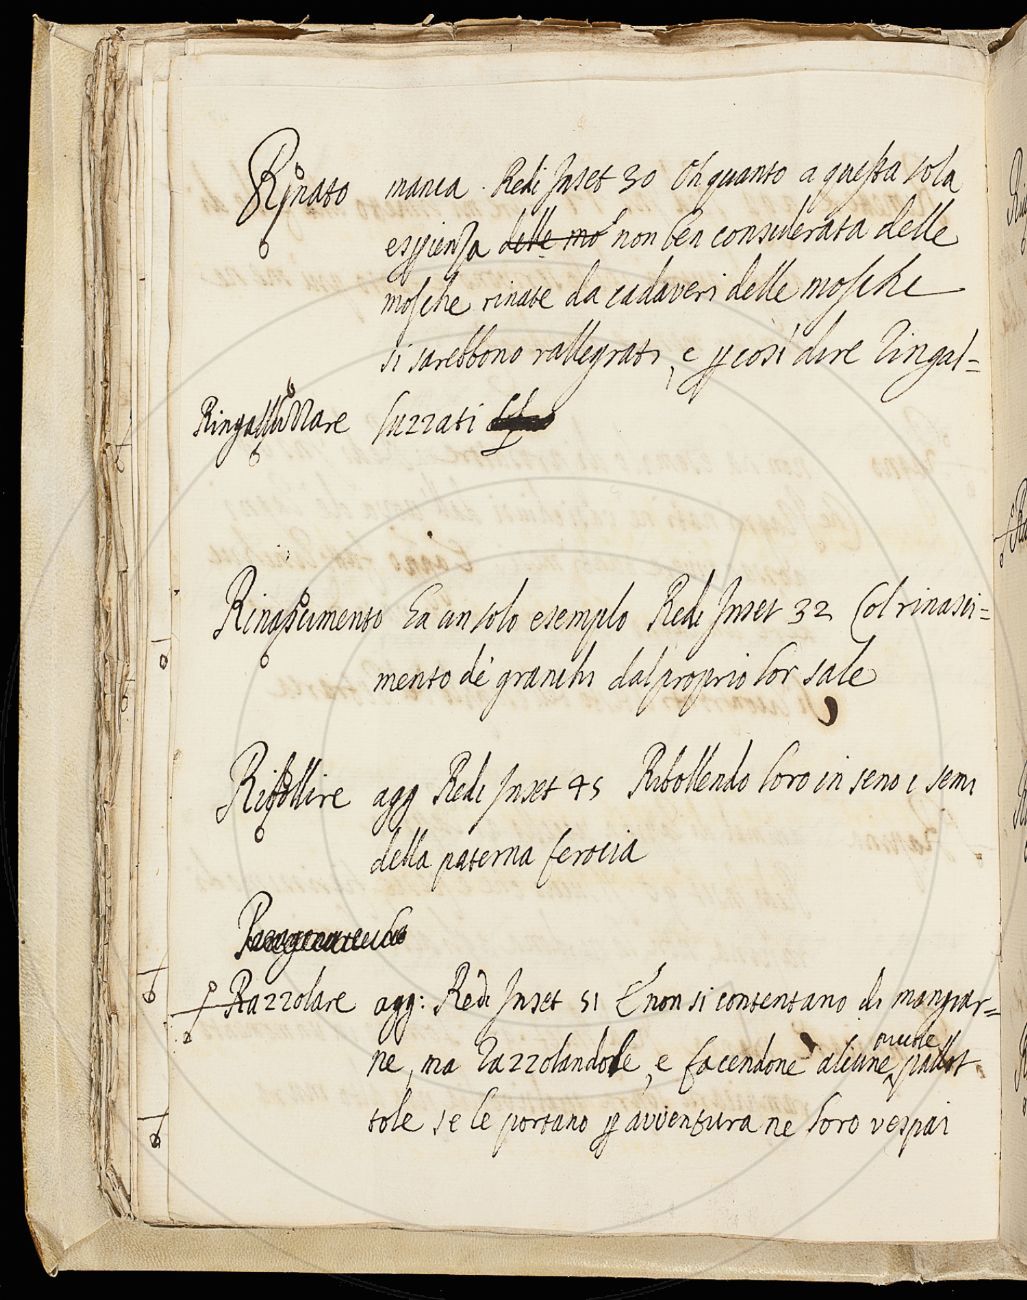 Rinato manca. Redi Inset 30 Oh quanto a questa sola
espienza delle mo non ben considerata delle
mosche rinate da cadaveri delle mosche
si sarebbono rallegrati, e p così dire ringal=
Ringalluzzare luzzati
Rinascimento Ha un solo esemplo Redi Inset 32 Col rinasci=
mento de granchi dal proprio lor sale
Ribollire agg Redi Inset 45 Ribollendo loro in seno i semi
della paterna ferocia
Razzolare agg: Redi Inset 51 E non si contentano di mangiar=
ne, ma razzolandole, e facendone alcune piccole pallot
tole se le portano p avventura ne loro vespai